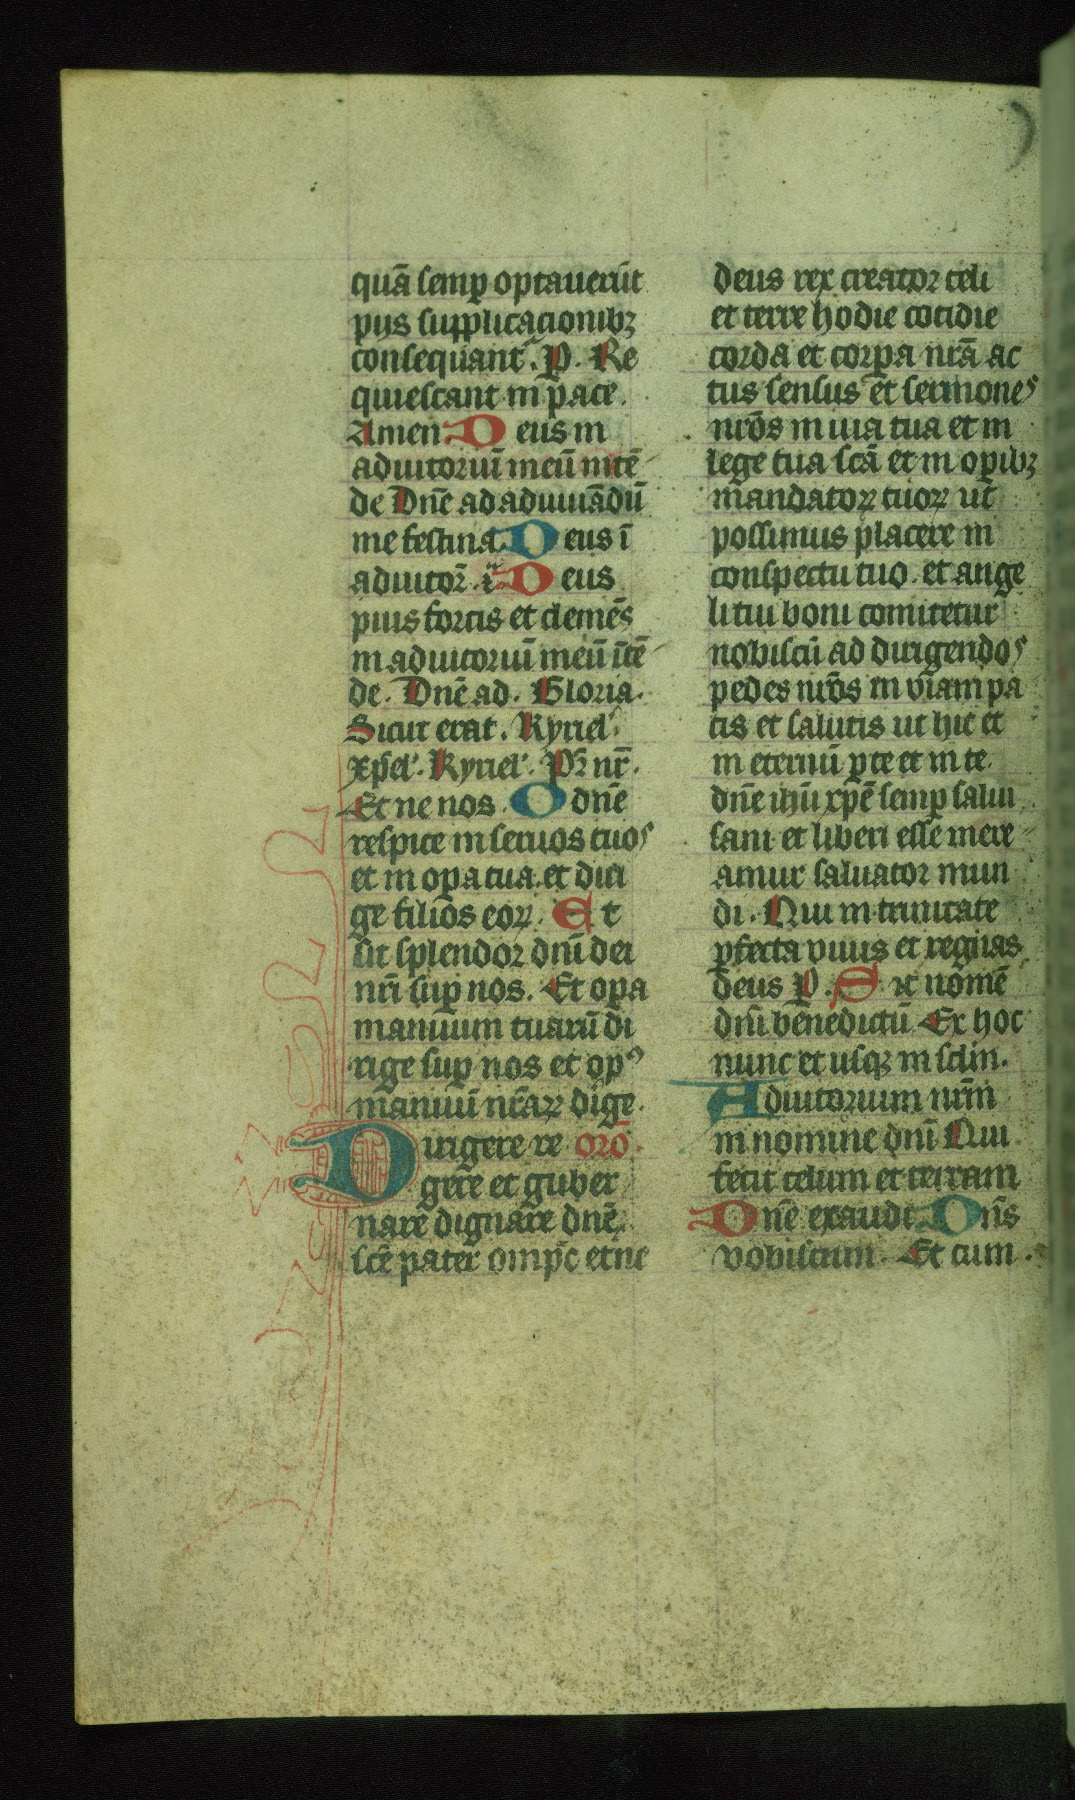 quā semp optauerūt
pijs supplicacionibꝫ
consequant᷑. P. Re
quiescant in pace.
Amen Deus in
adiutoriū meū intē
de Dn̄e ad adiuuādū
me festina. Deus ī
adiutor̄. ī Deus
pius fortis et clemēs
in adiutoriū meū ītē
de. Dn̄e ad. Gloria.
Sicut erat. Kyriel᷑
xp̄el᷑. Kyriel᷑. Pr̄ nr̄.
Et ne nos. O dn̄e
respice in seruos tuos
et in opa tua. et diri
ge filios eoꝝ. Et
sit splendor dn̄i dei
nr̄i sup nos. Et opa
manuum tuarū di
rige sup nos et opꝰ
manuū nr̄aꝝ dige.
Dirigere re oro᷑.
gere et guber
nare dignare dn̄e
sc̄e pater omp̄c etne
deus rex creator celi
et terre hodie cotidie
corda et corpa nr̄a ac
tus sensus et sermones
nr̄os in uia tua et in
lege tua sc̄a et in opibꝫ
mandatoꝝ tuoꝝ ut
possimus placere in
conspectu tuo. et ange
li tui boni comitetur
nobiscū ad dirigendos
pedes nr̄os in viam pa
cis et salutis ut hic et
in eternū p te et in te
dn̄e ihū xp̄e semp salui
sani et liberi esse mere
amur saluator mun
di. Qui in trinitate
pfecta viuis et regnas
deus P. Sit nomē
dn̄i benedictū Ex hoc
nunc et usqꝫ in sclm̄.
Adiutorium nr̄m
in nomine dn̄i Qui
fecit celum et terram
Dn̄e exaudi. Dn̄s
vobiscum. Et cum.